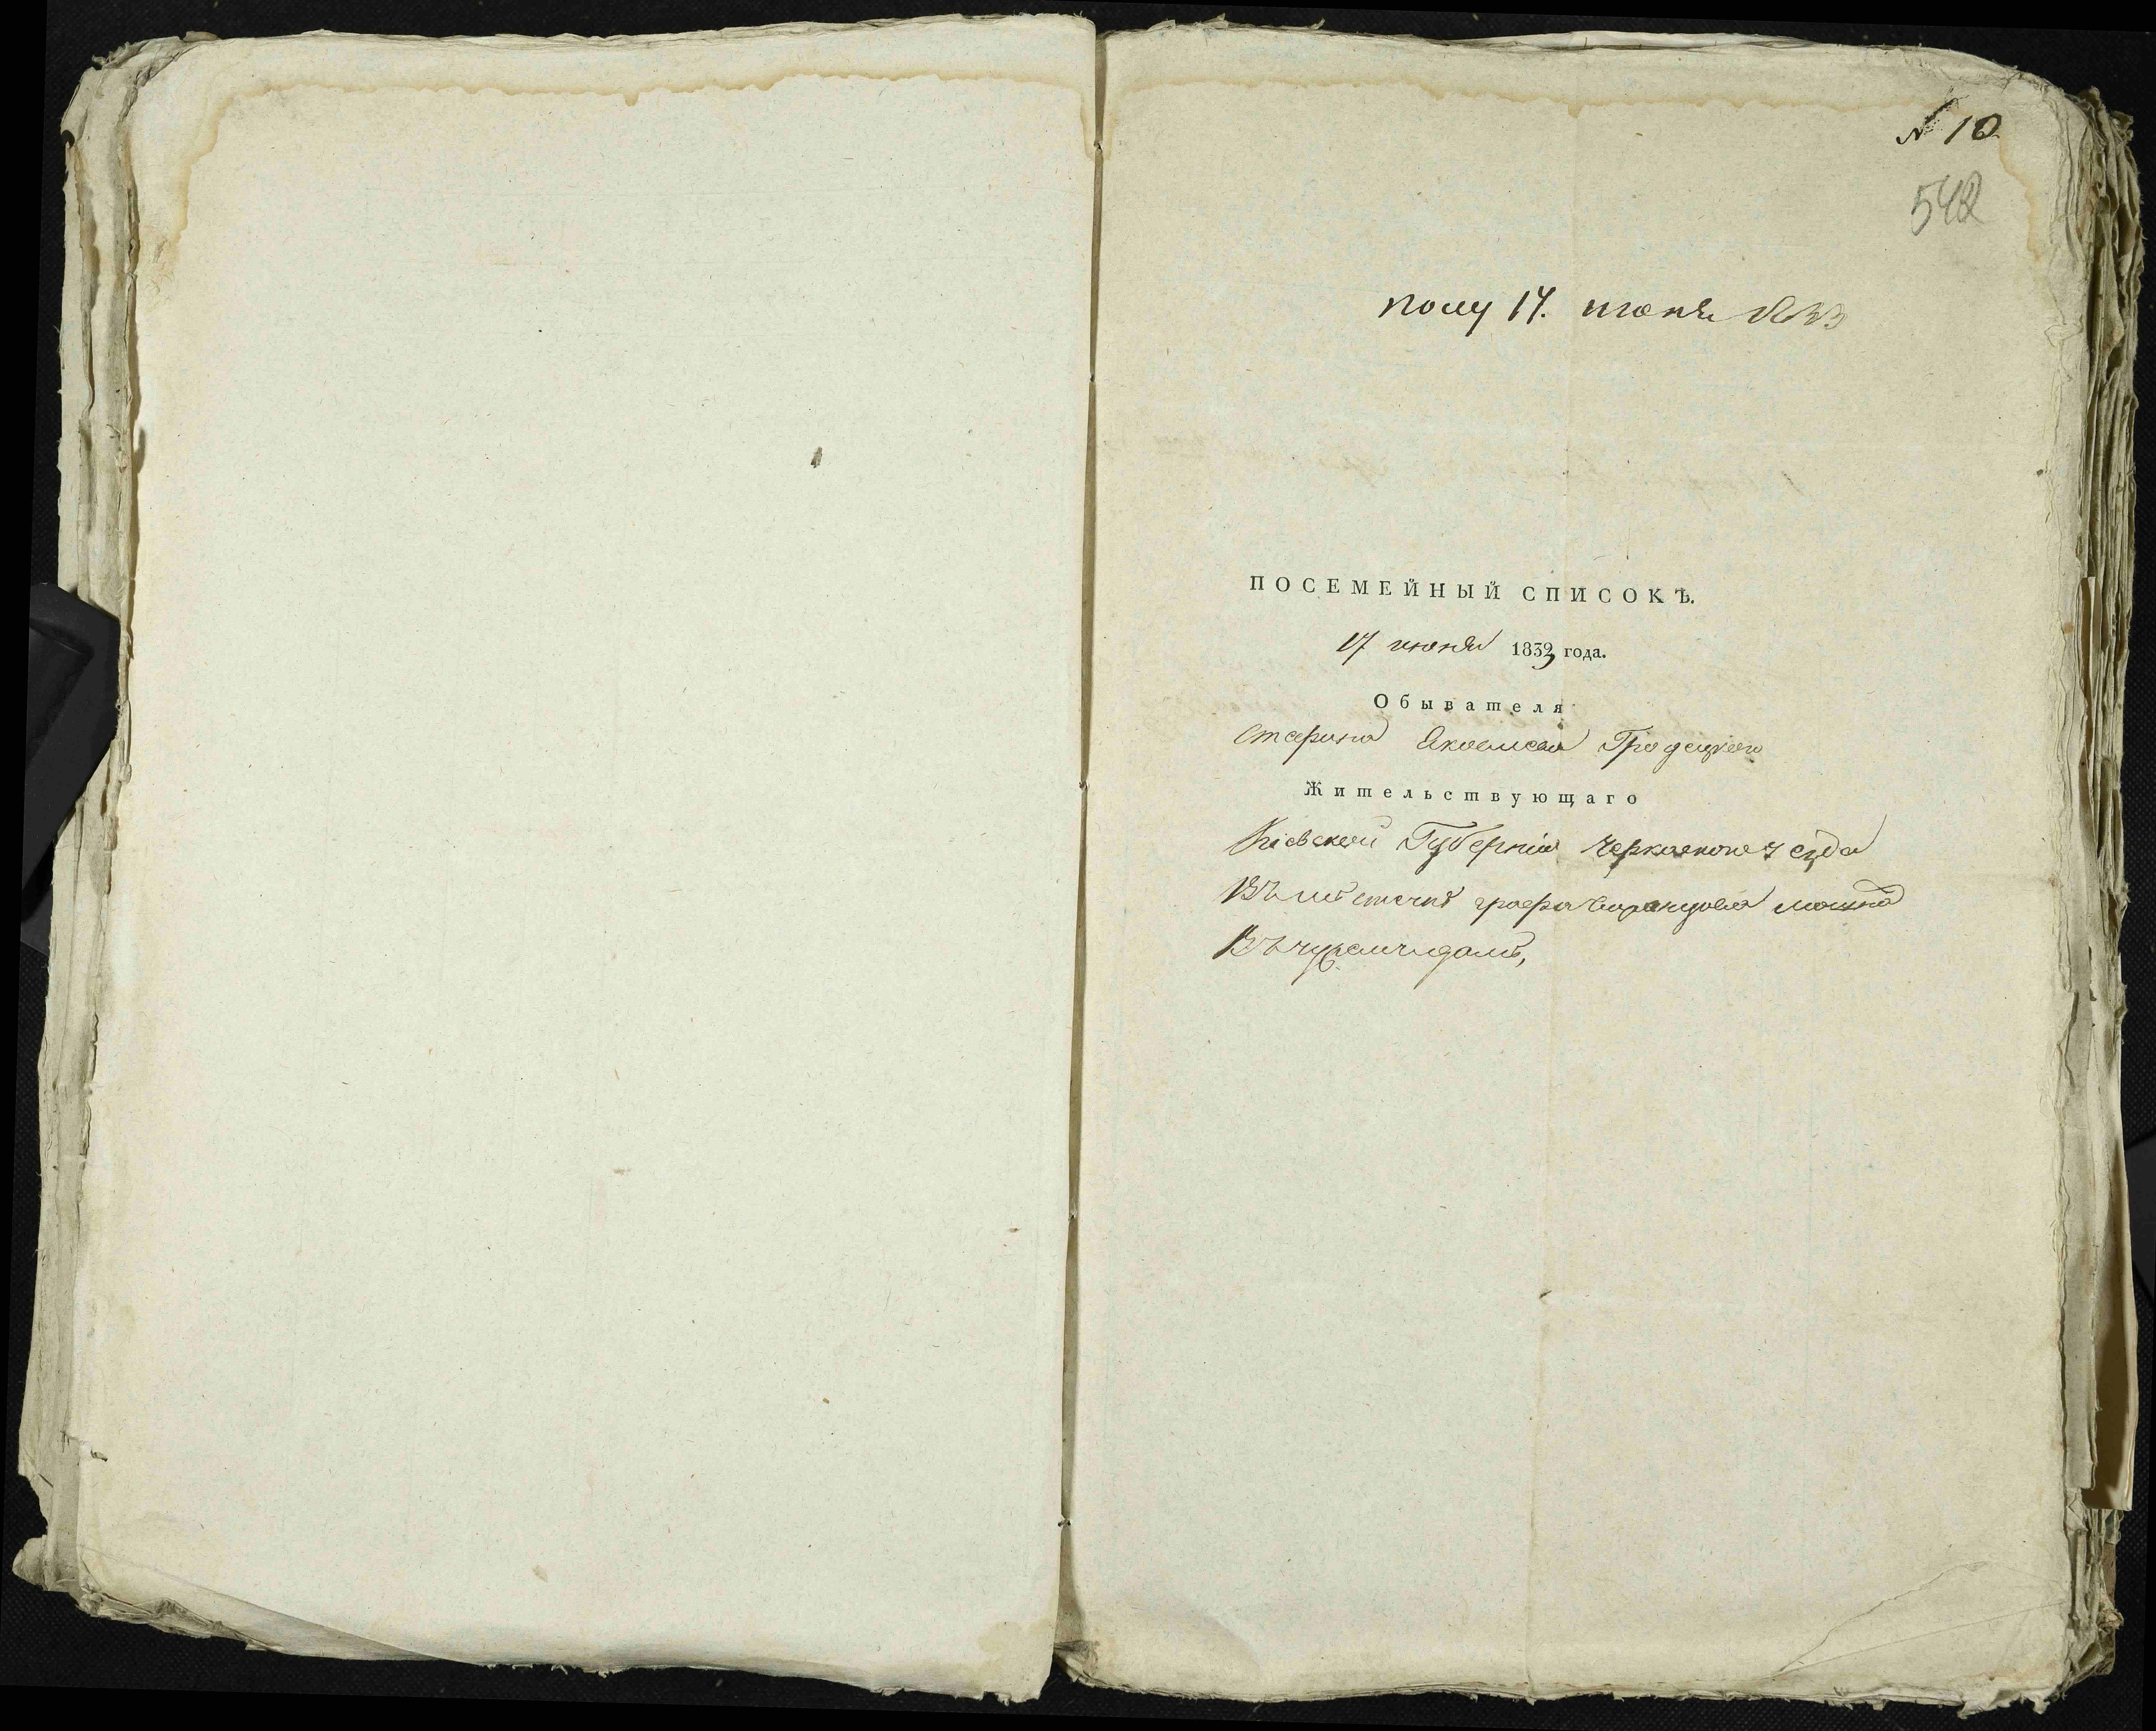 N 10
542
полу 17. июня 1833
ПОСЕМЕЙНЫЙ СПИСОКЪ.
17 июня 1833 года.
Обывателя
Гродецкого
Жительствующаго
Кіевской Губерніи Черкаского уезда
Въ местечке графа Воронцова Мошна
Въ чужом доме,